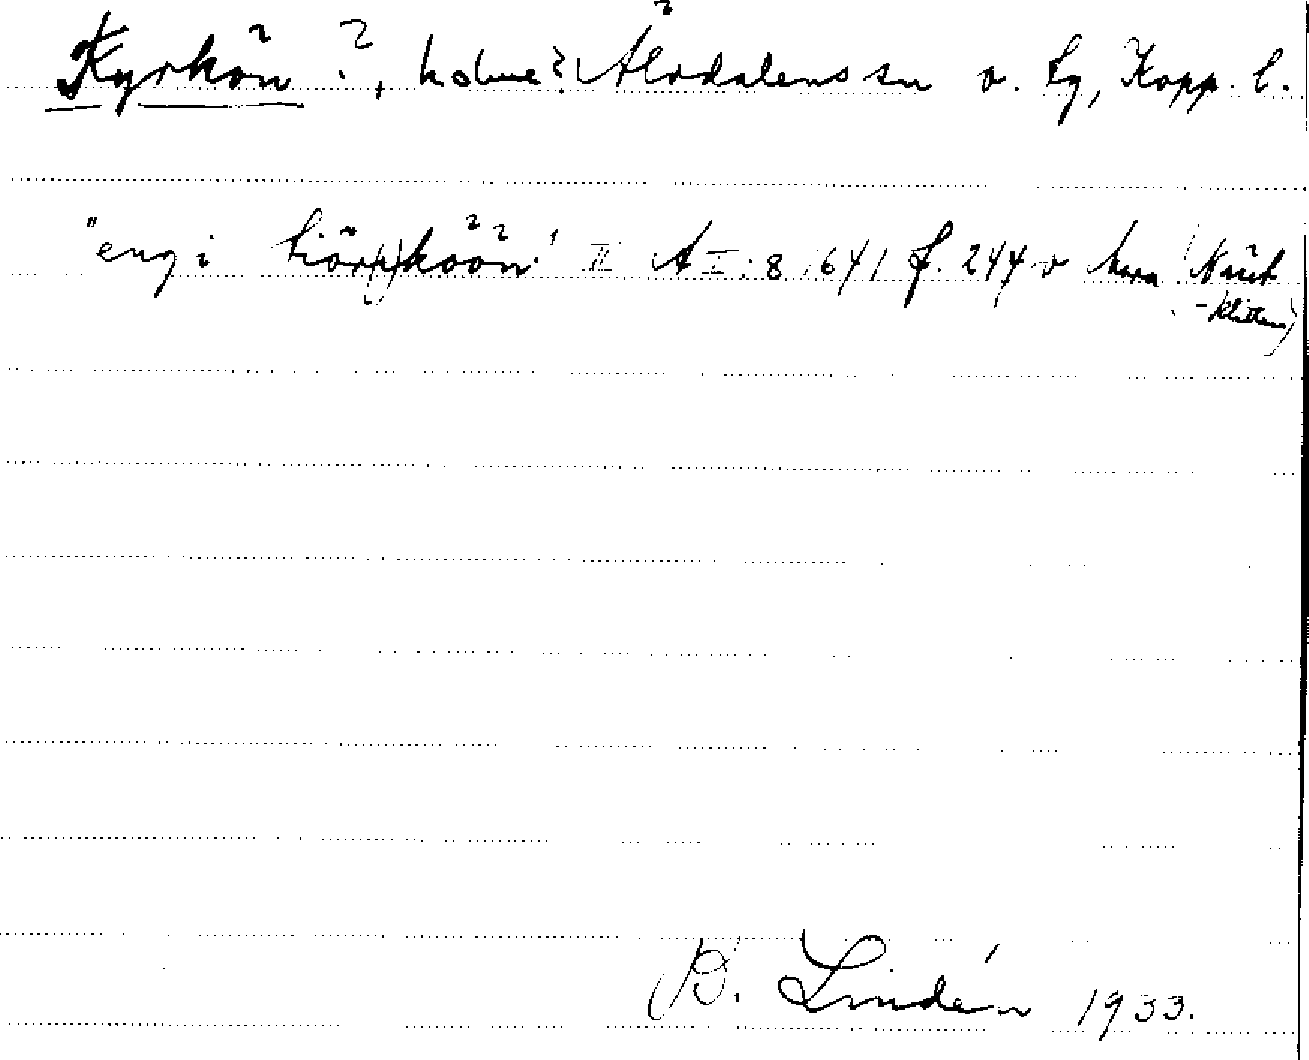 Kyrkön ?, holme? Älvdalens sn o. tg, Kopp. l.
"eng i kiör(p)köön" II A I:8 1641 f. 244 v Mora (Näset
-Klitten)
B. Lindén 1933.